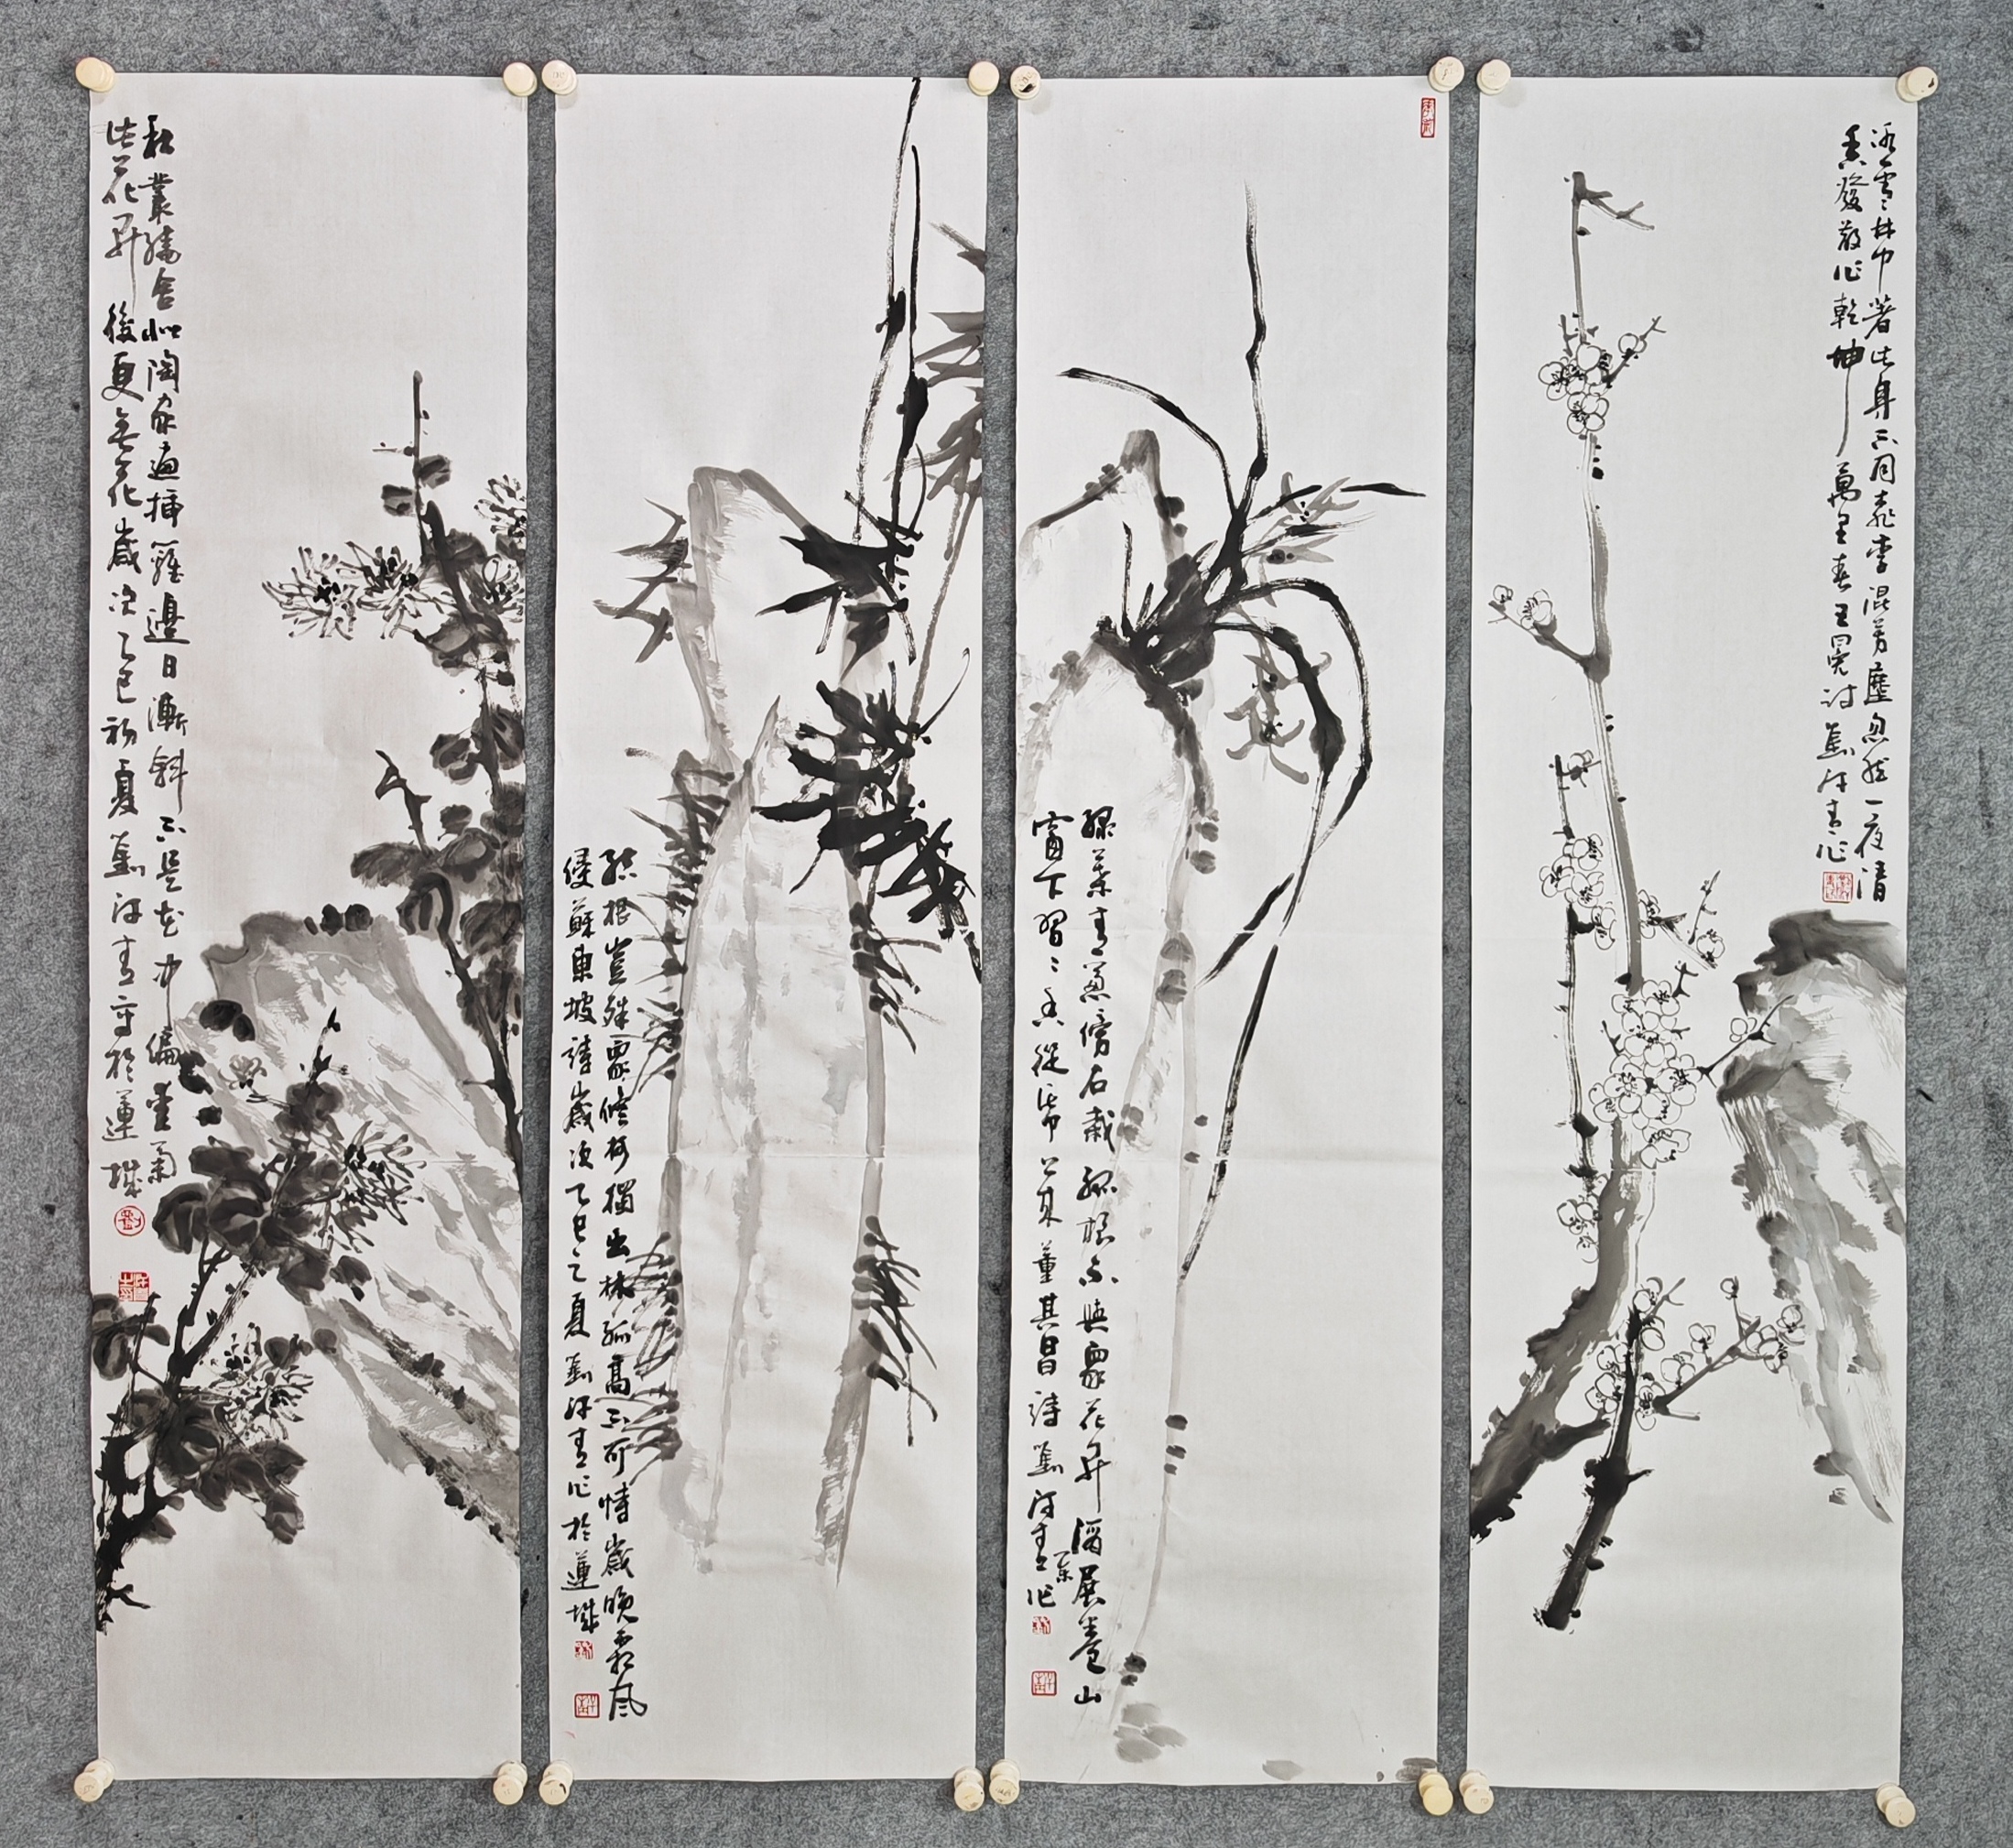 冰雪林中著此身不同桃李混芳塵忽然一夜清
香發散作乾坤萬里春王冕詩劉汗青作
綠葉青蔥傍石栽孤根不與眾花开酒展卷山
窗下習〻香從紙上來董其昌詩劉汗青作
結根豈殊眾修柯獨出林孤高不可恃歲晚霜風
侵蘇東坡詩歲次乙巳之夏劉汗青作於蓮城
秋叢繞舍似陶家遍插籬邊日漸斜不是花中偏愛菊
此花开後更無花歲次乙巳初夏劉汗青寫於蓮城